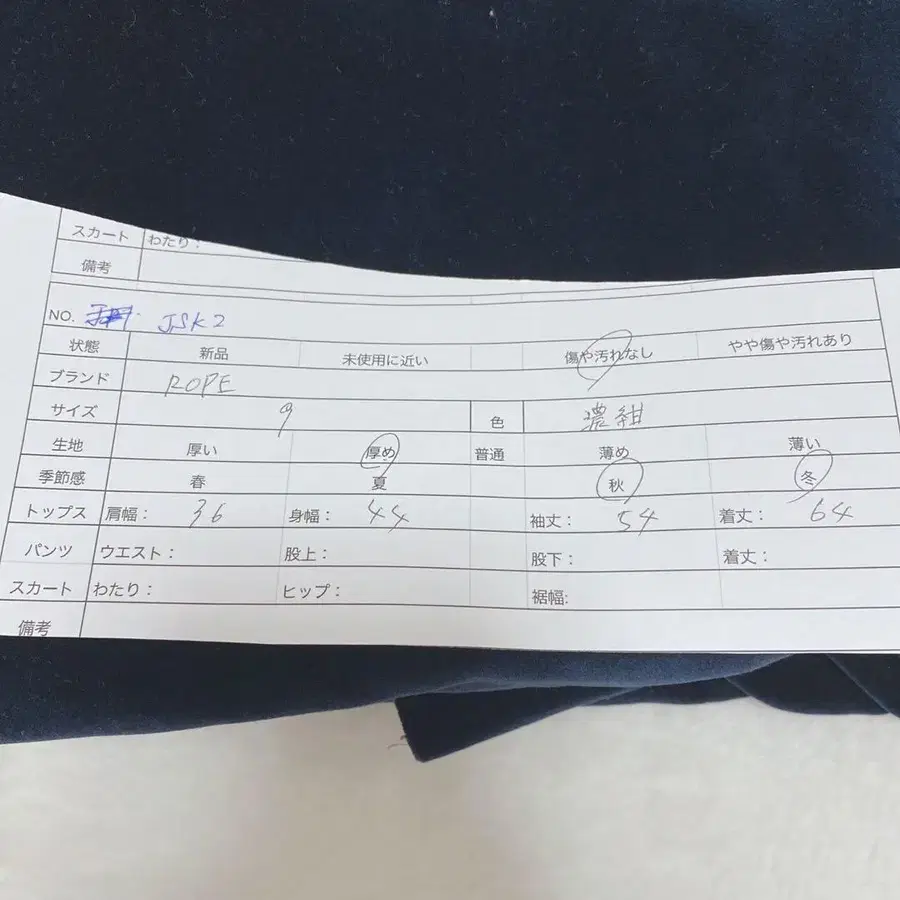 スカート わたり：
備考
NO. JSK2
状態 新品 未使用に近い 傷や汚れなし やや傷や汚れあり
ブランド ROPE
サイズ 9 色 濃紺
生地 厚い 厚め 普通 薄め 薄い
季節感 春 夏 秋 冬
トップス 肩幅： 36 身幅： 44 袖丈： 54 着丈： 64
パンツ ウエスト： 股上： 股下： 着丈：
スカート わたり： ヒップ： 裾幅:
備考